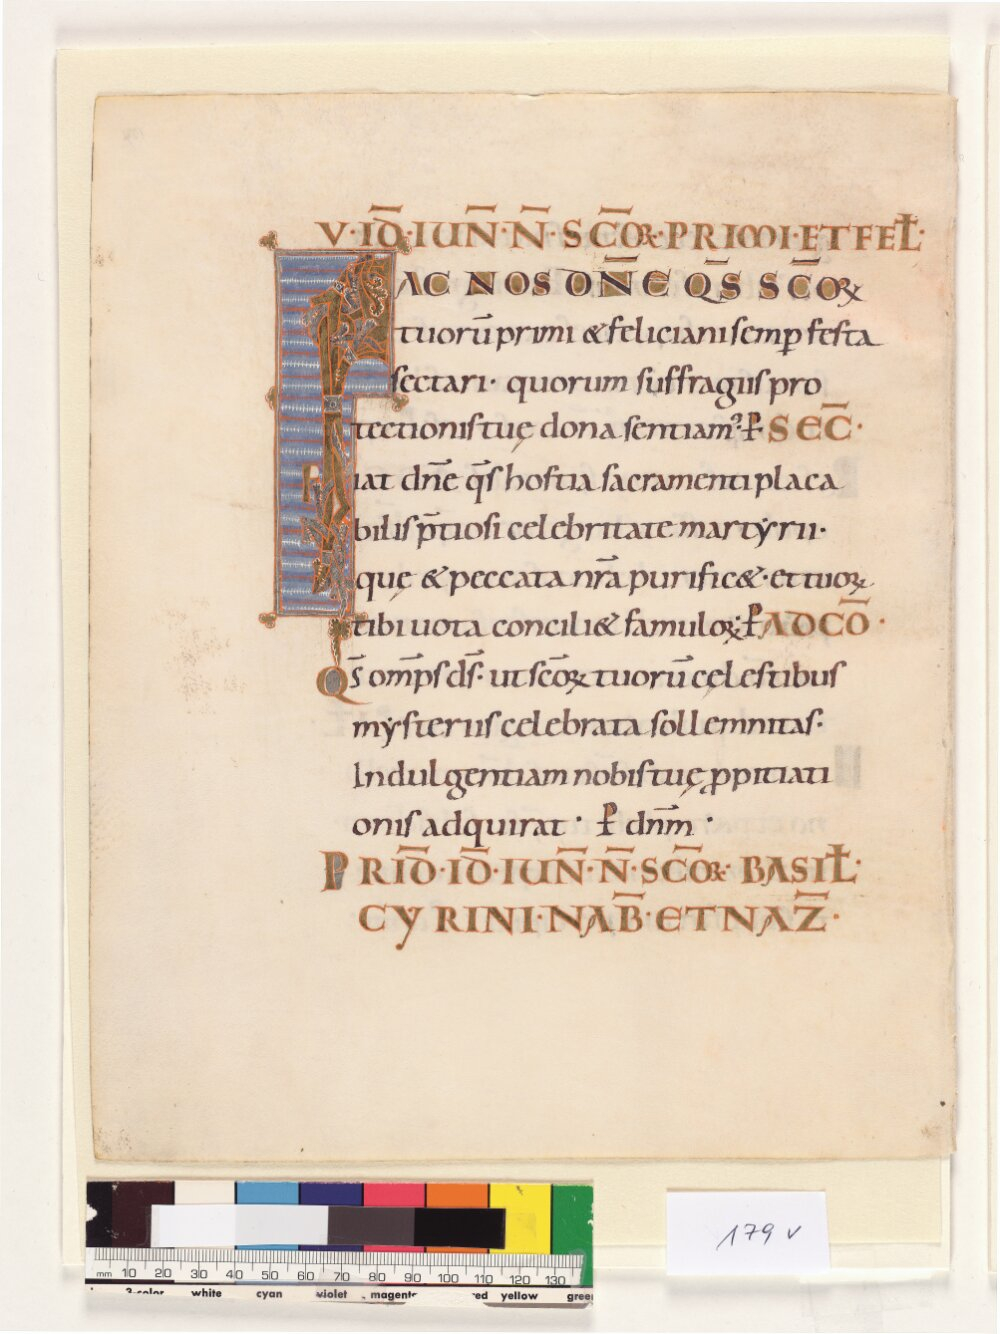 V·ID̅·IUN̅·N̅·SC̅OꝜ·PRIMI·ET FEL̅·
FAC NOS DN̅E QS̅ SC̅OꝜ
tuorū primi & feliciani semp̲ festa
sectari· quorum suffragiis pro
tectionis tuę dona sentiamꝰ· P̲ SEC̅·
Fiat dn̅e qs̅ hostia sacramenti placa
bilis p̅tiosi celebritate martẏrii·
quę & peccata nr̅a purific&· et tuoꝝ
tibi uota concili& famuloꝝ· P̲ AD CO̅·
Qs̅ omp̅s ds̅· ut sc̅oꝝ tuorū cęlestibus
mẏsteriis celebrata sollemnitas·
Indulgentiam nobis tuę ꝓpitiati
onis adquirat· P̲ dnm̅·
PRID̅·ID̅·IUN̅·N̅·SC̅OꝜ· BASIL̅·
CYRINI·NAB̅·ET NAZ̅·
179 v
mm 10 20 30 40 50 60 70 80 90 100 110 120 130
3-color white cyan violet magenta red yellow green